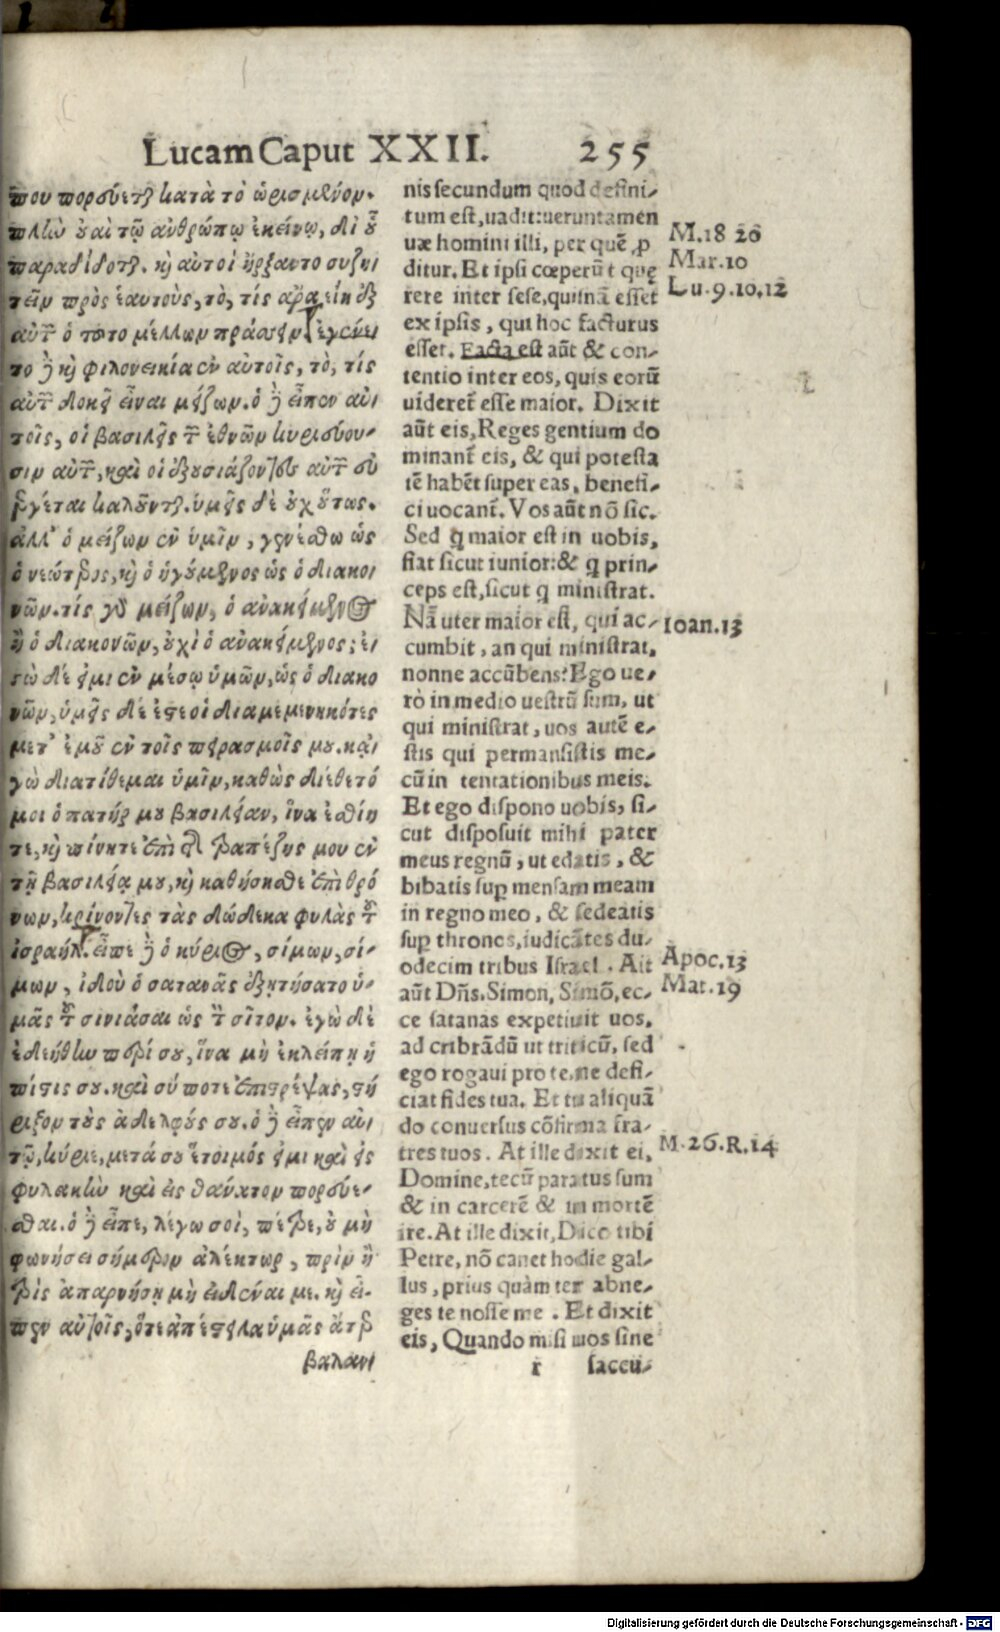 Lucam Caput XXII. 255
που πορεύεται κατὰ τὸ ὡρισμένον.
πλὴν οὐαὶ τῷ ἀνθρώπῳ ἐκείνῳ, δι οὗ
παραδίδοται. καὶ αὐτοὶ ἤρξαντο συζη
τεῖν πρὸς ἑαυτοὺς, τὸ, τίς ἄρα εἴη ἐξ
αὐτῶν ὁ τοῦτο μέλλων πράσσειν. ἐγένε
το δὲ καὶ φιλονεικία ἐν αὐτοῖς, τὸ, τίς
αὐτῶν δοκεῖ εἶναι μείζων. ὁ δὲ εἶπεν αὐ
τοῖς, οἱ βασιλεῖς τῶν ἐθνῶν κυριεύου-
σιν αὐτῶν, καὶ οἱ ἐξουσιάζοντες αὐτῶν εὐ
εργέται καλοῦνται. ὑμεῖς δὲ οὐχ οὕτως.
ἀλλ' ὁ μείζων ἐν ὑμῖν, γενέσθω ὡς
ὁ νεώτερος, καὶ ὁ ἡγούμενος ὡς ὁ διακο
νῶν. τίς γὰρ μείζων, ὁ ἀνακείμενος
ἢ ὁ διακονῶν, οὐχὶ ὁ ἀνακείμενος; ἐ
γὼ δέ εἰμι ἐν μέσῳ ὑμῶν, ὡς ὁ διακο
νῶν, ὑμεῖς δέ ἐστε οἱ διαμεμενηκότες
μετ' ἐμοῦ ἐν τοῖς πειρασμοῖς μου. κᾀ
γὼ διατίθεμαι ὑμῖν, καθὼς διέθετό
μοι ὁ πατήρ μου βασιλείαν, ἵνα ἐσθίη
τε, καὶ πίνητε ἐπὶ τῆς τραπέζης μου ἐν
τῇ βασιλείᾳ μου, καὶ καθήσησθε ἐπὶ θρό
νων, κρίνοντες τὰς δώδεκα φυλὰς τοῦ
ἰσραήλ. εἶπε δὲ ὁ κύριος, σίμων, σί-
μων, ἰδοὺ ὁ σατανᾶς ἐξῃτήσατο ὑ-
μᾶς τοῦ σινιάσαι ὡς τὸν σῖτον. ἐγὼ δὲ
ἐδεήθην περί σου, ἵνα μὴ ἐκλείπῃ ἡ
πίστις σου. καὶ σύ ποτε ἐπιστρέψας, στή
ριξον τοὺς ἀδελφούς σου. ὁ δὲ εἶπεν αὐ
τῷ, κύριε, μετά σου ἕτοιμός εἰμι καὶ εἰς
φυλακὴν καὶ εἰς θάνατον πορεύε-
σθαι. ὁ δὲ εἶπε, λέγω σοὶ, πέτρε, οὐ μὴ
φωνήσει σήμερον ἀλέκτωρ, πρὶν ἢ
τρὶς ἀπαρνήσῃ μὴ εἰδέναι με. καὶ εἶ-
πεν αὐτοῖς, ὅτε ἀπέστειλα ὑμᾶς ἄτερ
βαλαν
nis secundum quod defini-
tum est, uadit: ueruntamen
uæ homini illi, per quẽ p
ditur. Et ipsi cœperũt quę
rere inter sese, quisnã esset
ex ipsis, qui hoc facturus
esset. Facta est aũt & con-
tentio inter eos, quis eorũ
uideret̃ esse maior. Dixit
aũt eis, Reges gentium do
minant̃ eis, & qui potesta
tẽ habẽt super eas, benefi-
ci uocant̃. Vos aũt nõ sic.
Sed q̃ maior est in uobis,
fiat sicut iunior: & q prin-
ceps est, sicut q ministrat.
Nã uter maior est, qui ac-
cumbit, an qui ministrat,
nonne accũbens? Ego ue-
rò in medio uestrũ sum, ut
qui ministrat, uos autẽ e-
stis qui permansistis me-
cũ in tentationibus meis.
Et ego dispono uobis, si-
cut disposuit mihi pater
meus regnũ, ut edatis, &
bibatis sup mensam meam
in regno meo, & sedeatis
sup thronos, iudicãtes du-
odecim tribus Israel. Ait
aũt Dñs. Simon, Simõ, ec-
ce satanas expetiuit uos,
ad cribrãdũ ut triticũ, sed
ego rogaui pro te, ne defi-
ciat fides tua. Et tu aliquã
do conuersus cõfirma fra-
tres tuos. At ille dixit ei,
Domine, tecũ paratus sum
& in carcerẽ & in mortẽ
ire. At ille dixit, Dico tibi
Petre, nõ canet hodie gal-
lus, prius quàm ter abne-
ges te nosse me. Et dixit
eis, Quando misi uos sine
r saccu-
M.18 26
Mar.10
Lu.9.10,12
Ioan.13
Apoc.13
Mat.19
M.26.R.14
Digitalisierung gefördert durch die Deutsche Forschungsgemeinschaft - DFG